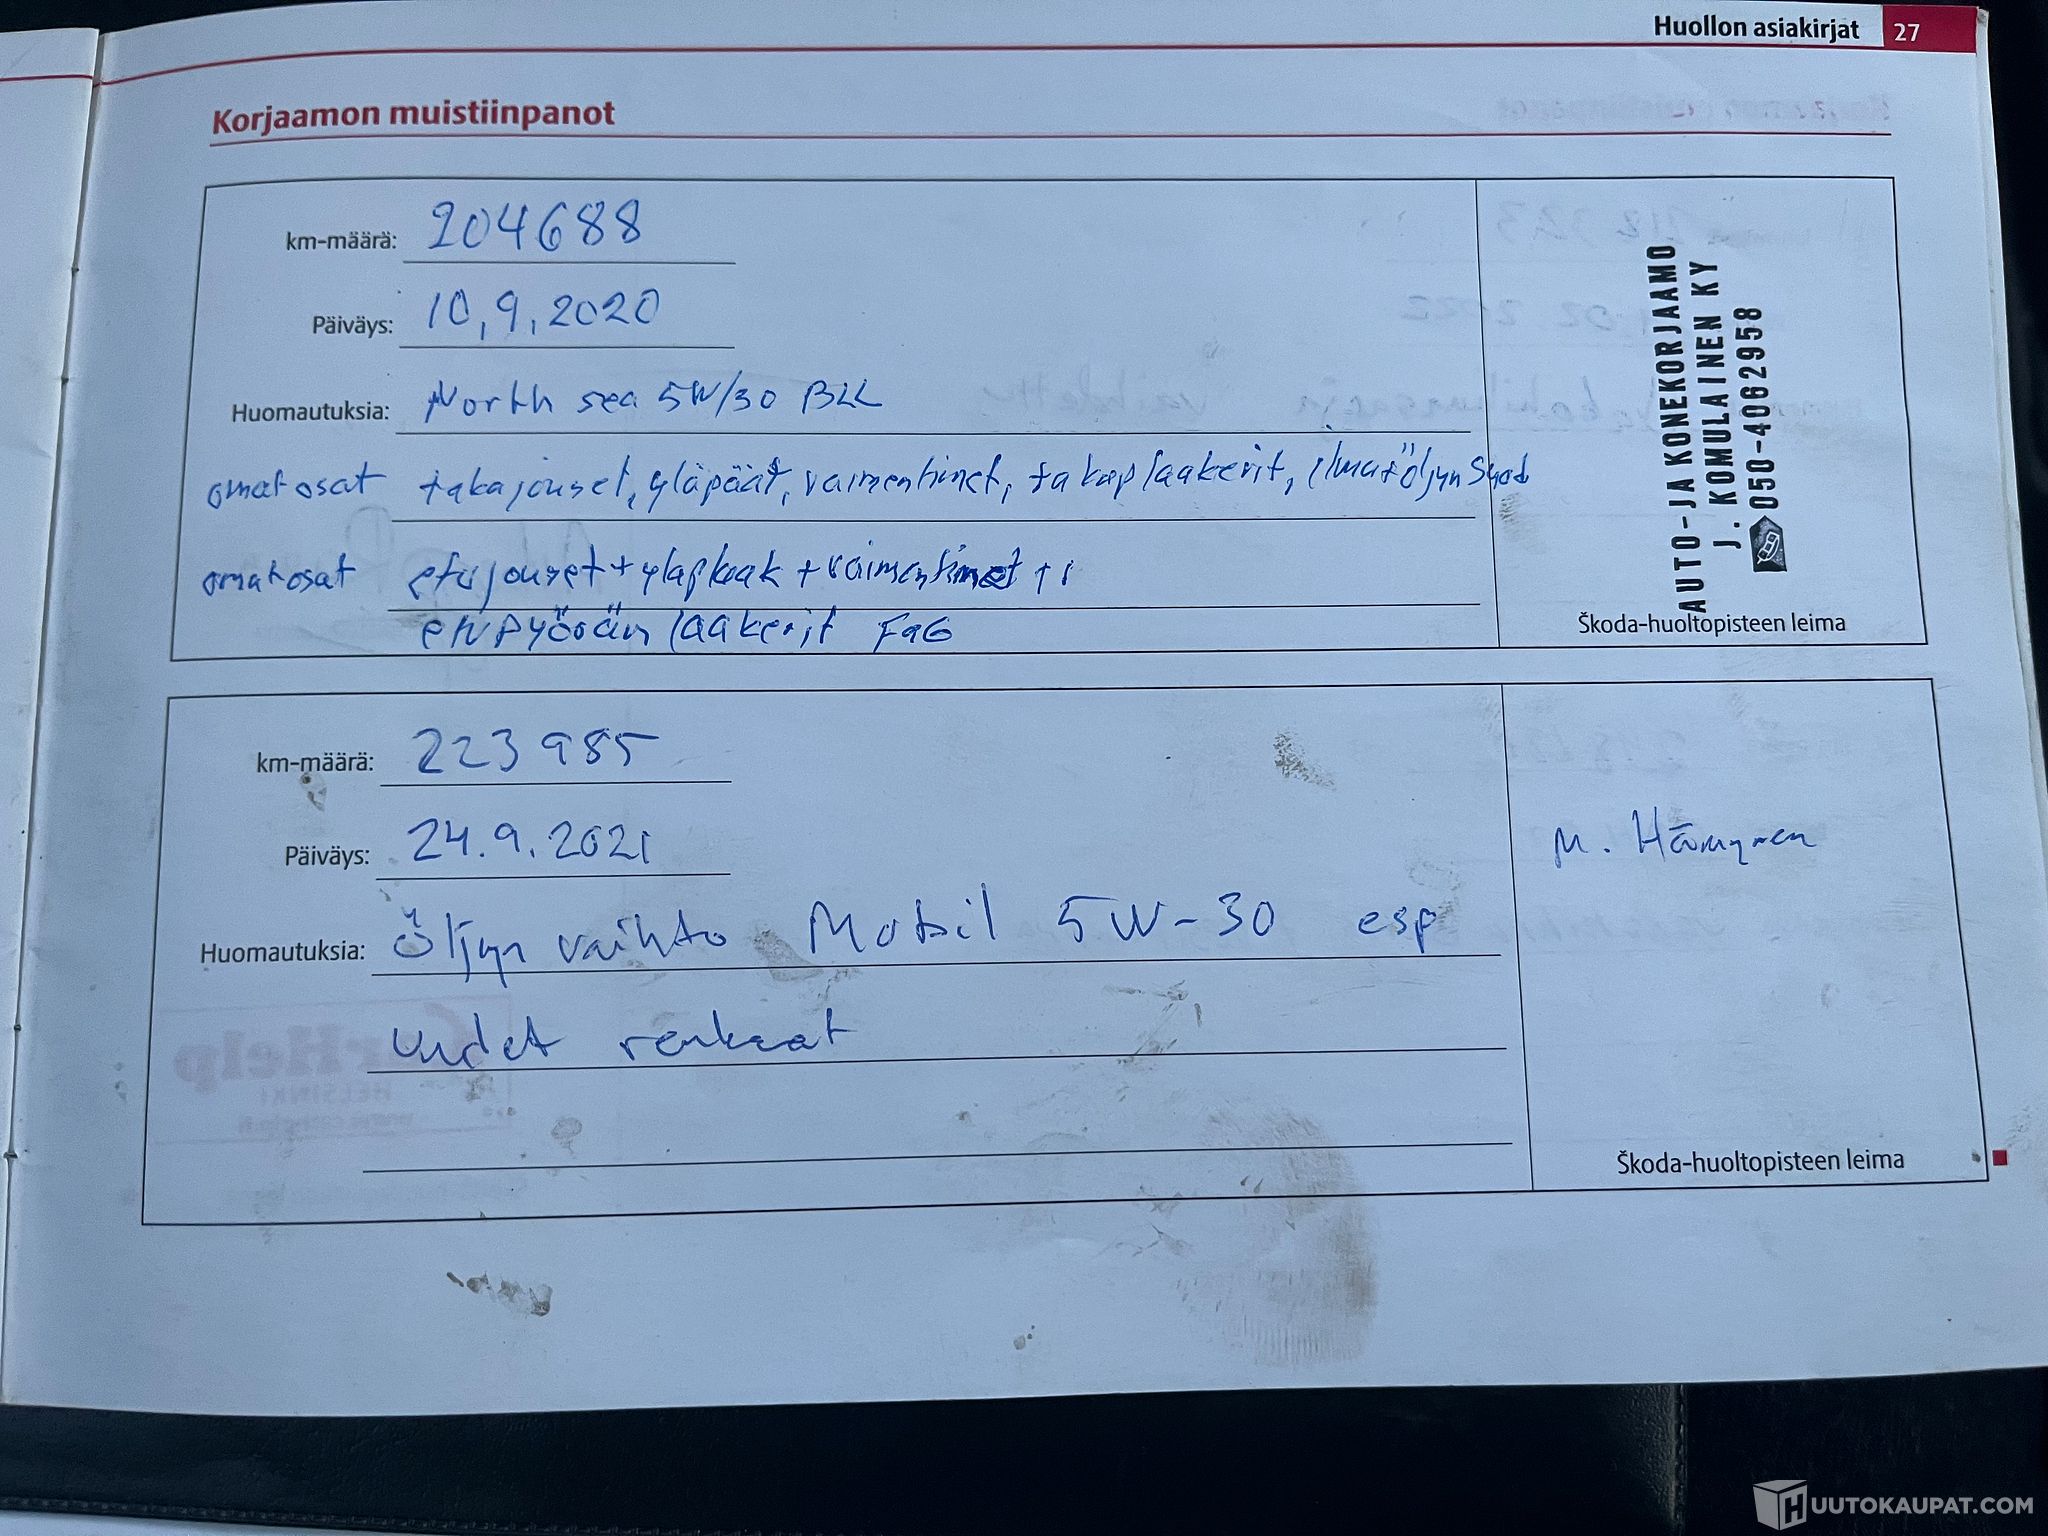 Huollon asiakirjat 27
Korjaamon muistiinpanot
km-määrä: 204688
Päiväys: 10.9.2020
Huomautuksia: North sea 5W/30 BLL
omat osat takajouset, yläpäät, vaimentimet, takap laakerit, ilma+öljyn suod
omat osat etujouset + ylaplaak + vaimentimet +
etupyörän laakerit FaG
AUTO-JA KONEKORJAAMO
J. KOMULAINEN KY
050-4062958
Škoda-huoltopisteen leima
km-määrä: 223985
Päiväys: 24.9.2021
M. Hämynen
Huomautuksia: Öljyn vaihto Mobil 5W-30 esp
Uudet renkaat
Škoda-huoltopisteen leima
HUUTOKAUPAT.COM